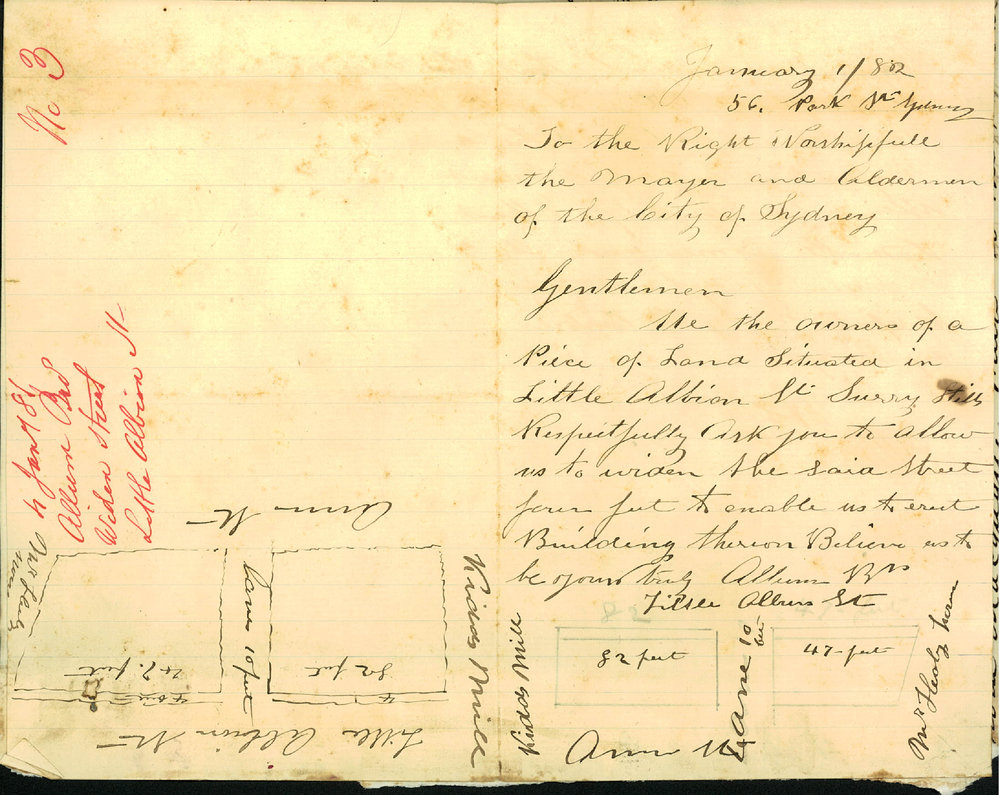 January 1/82
56. Park St Sydney
To the Right Worshipfull
the Mayer and Aldermen
of the City of Sydney
Gentlemen
We the owners of a
Piece of Land Situated in
Little Albion St Surry Hills
Respectfully Ask you to allow
us to widen the said Street
four feet to enable us to erect
Building thereon Believe us to
be yours truly Album Brs
Little Albion St
82
82 feet
47 feet
Kiddos Mill
Lane 10 feet
Mr Healy
Ann St
No 3
4 Jan 78
Album Bro
Widen Street
Little Albion St
Ann St
Lane 10 feet
82 feet
47 feet
4
4
Kiddos Mill
Little Albion St